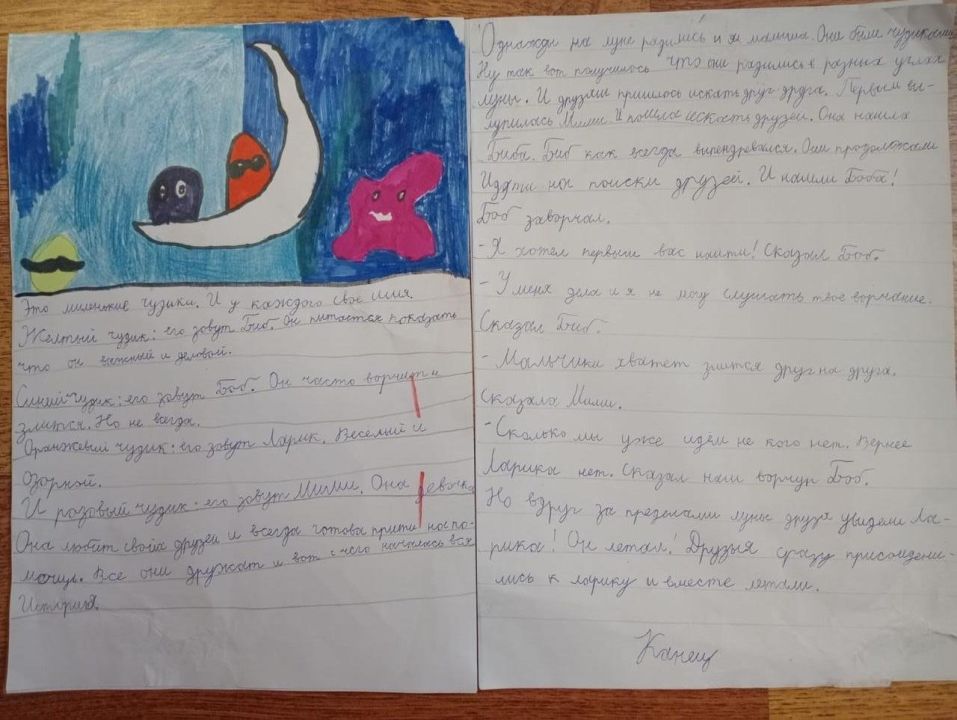 Это миленькие чузики. И у каждого своё имя.
Желтый чузик: его зовут Биб. Он питается показать
что он важный и деловой.
Синий чузик: его зовут Боб. Он часто ворчит и
злится. Но не всегда.
Оранжевый чузик: его зовут Ларик. Веселый и
озорной.
И розовый чузик: его зовут Мими. Она девочка
Она любит своих друзей и всегда готова прити на по-
мощь. Все они дружат и вот с чего началась вся
История.
Однажды на луне радились и малыша. Они были чузиками
Ну так вот получилось что они радились в разных углах
луны. И друзям пришлось искать друг друга. Первым вы-
лупилась Мими и пошла искать друзей. Она нашла
Биба. Биб как всегда выпендревался. Они продолжали
Идти на поиски друзей. И нашли Боба!
Боб заворчал.
- Я хотел первым вас найти! Сказал Боб.
- У меня дела и я не могу слушать твое ворчание.
Сказал Биб.
- Мальчики хватет злится друг на друга.
сказала Мими.
- Сколько мы уже идем не кого нет. Вернее
Ларика нет. Сказал наш ворчун Боб.
Но вдруг за пределами луны друзя увидели Ла-
рика! Он летал! Друзья сразу присоидени-
лись к ларику и вместе летали.
Канец